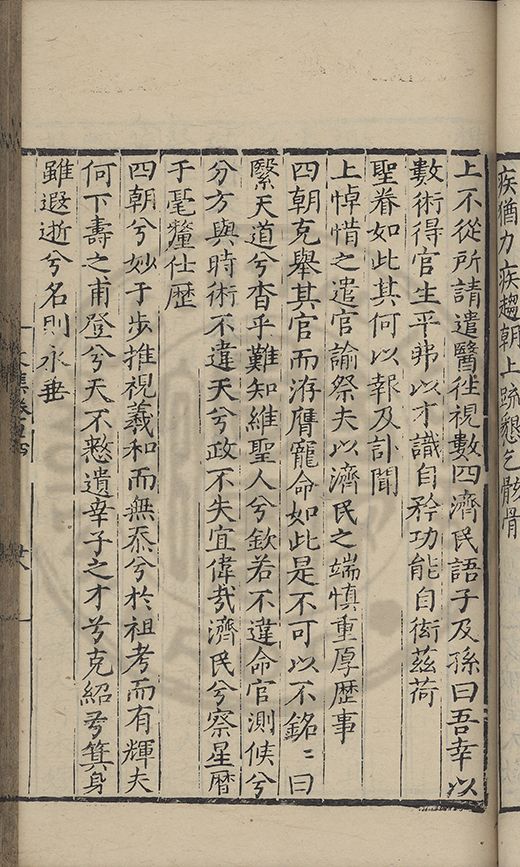 疾猶力疾趨朝上䟽懇乞骸骨
上不從所請遣醫徃視數四濟民語子及孫曰吾幸以
數術得官生平弗以才識自矜功能自衒茲荷
聖眷如此其何以報及訃聞
上悼惜之遣官諭祭夫以濟民之端慎重厚歷事
四朝克舉其官而洊膺寵命如此是不可以不銘〻曰
繄天道兮杳乎難知維聖人兮欽若不違命官測候兮
分方與時術不違天兮政不失宜偉㦲濟民兮察星曆
于毫釐仕歴
四朝兮妙于步推視羲和而無忝兮於祖考而有輝夫
何下壽之甫登兮天不憗遺幸子之才兮克紹兮箕身
雖遐逝兮名則永垂